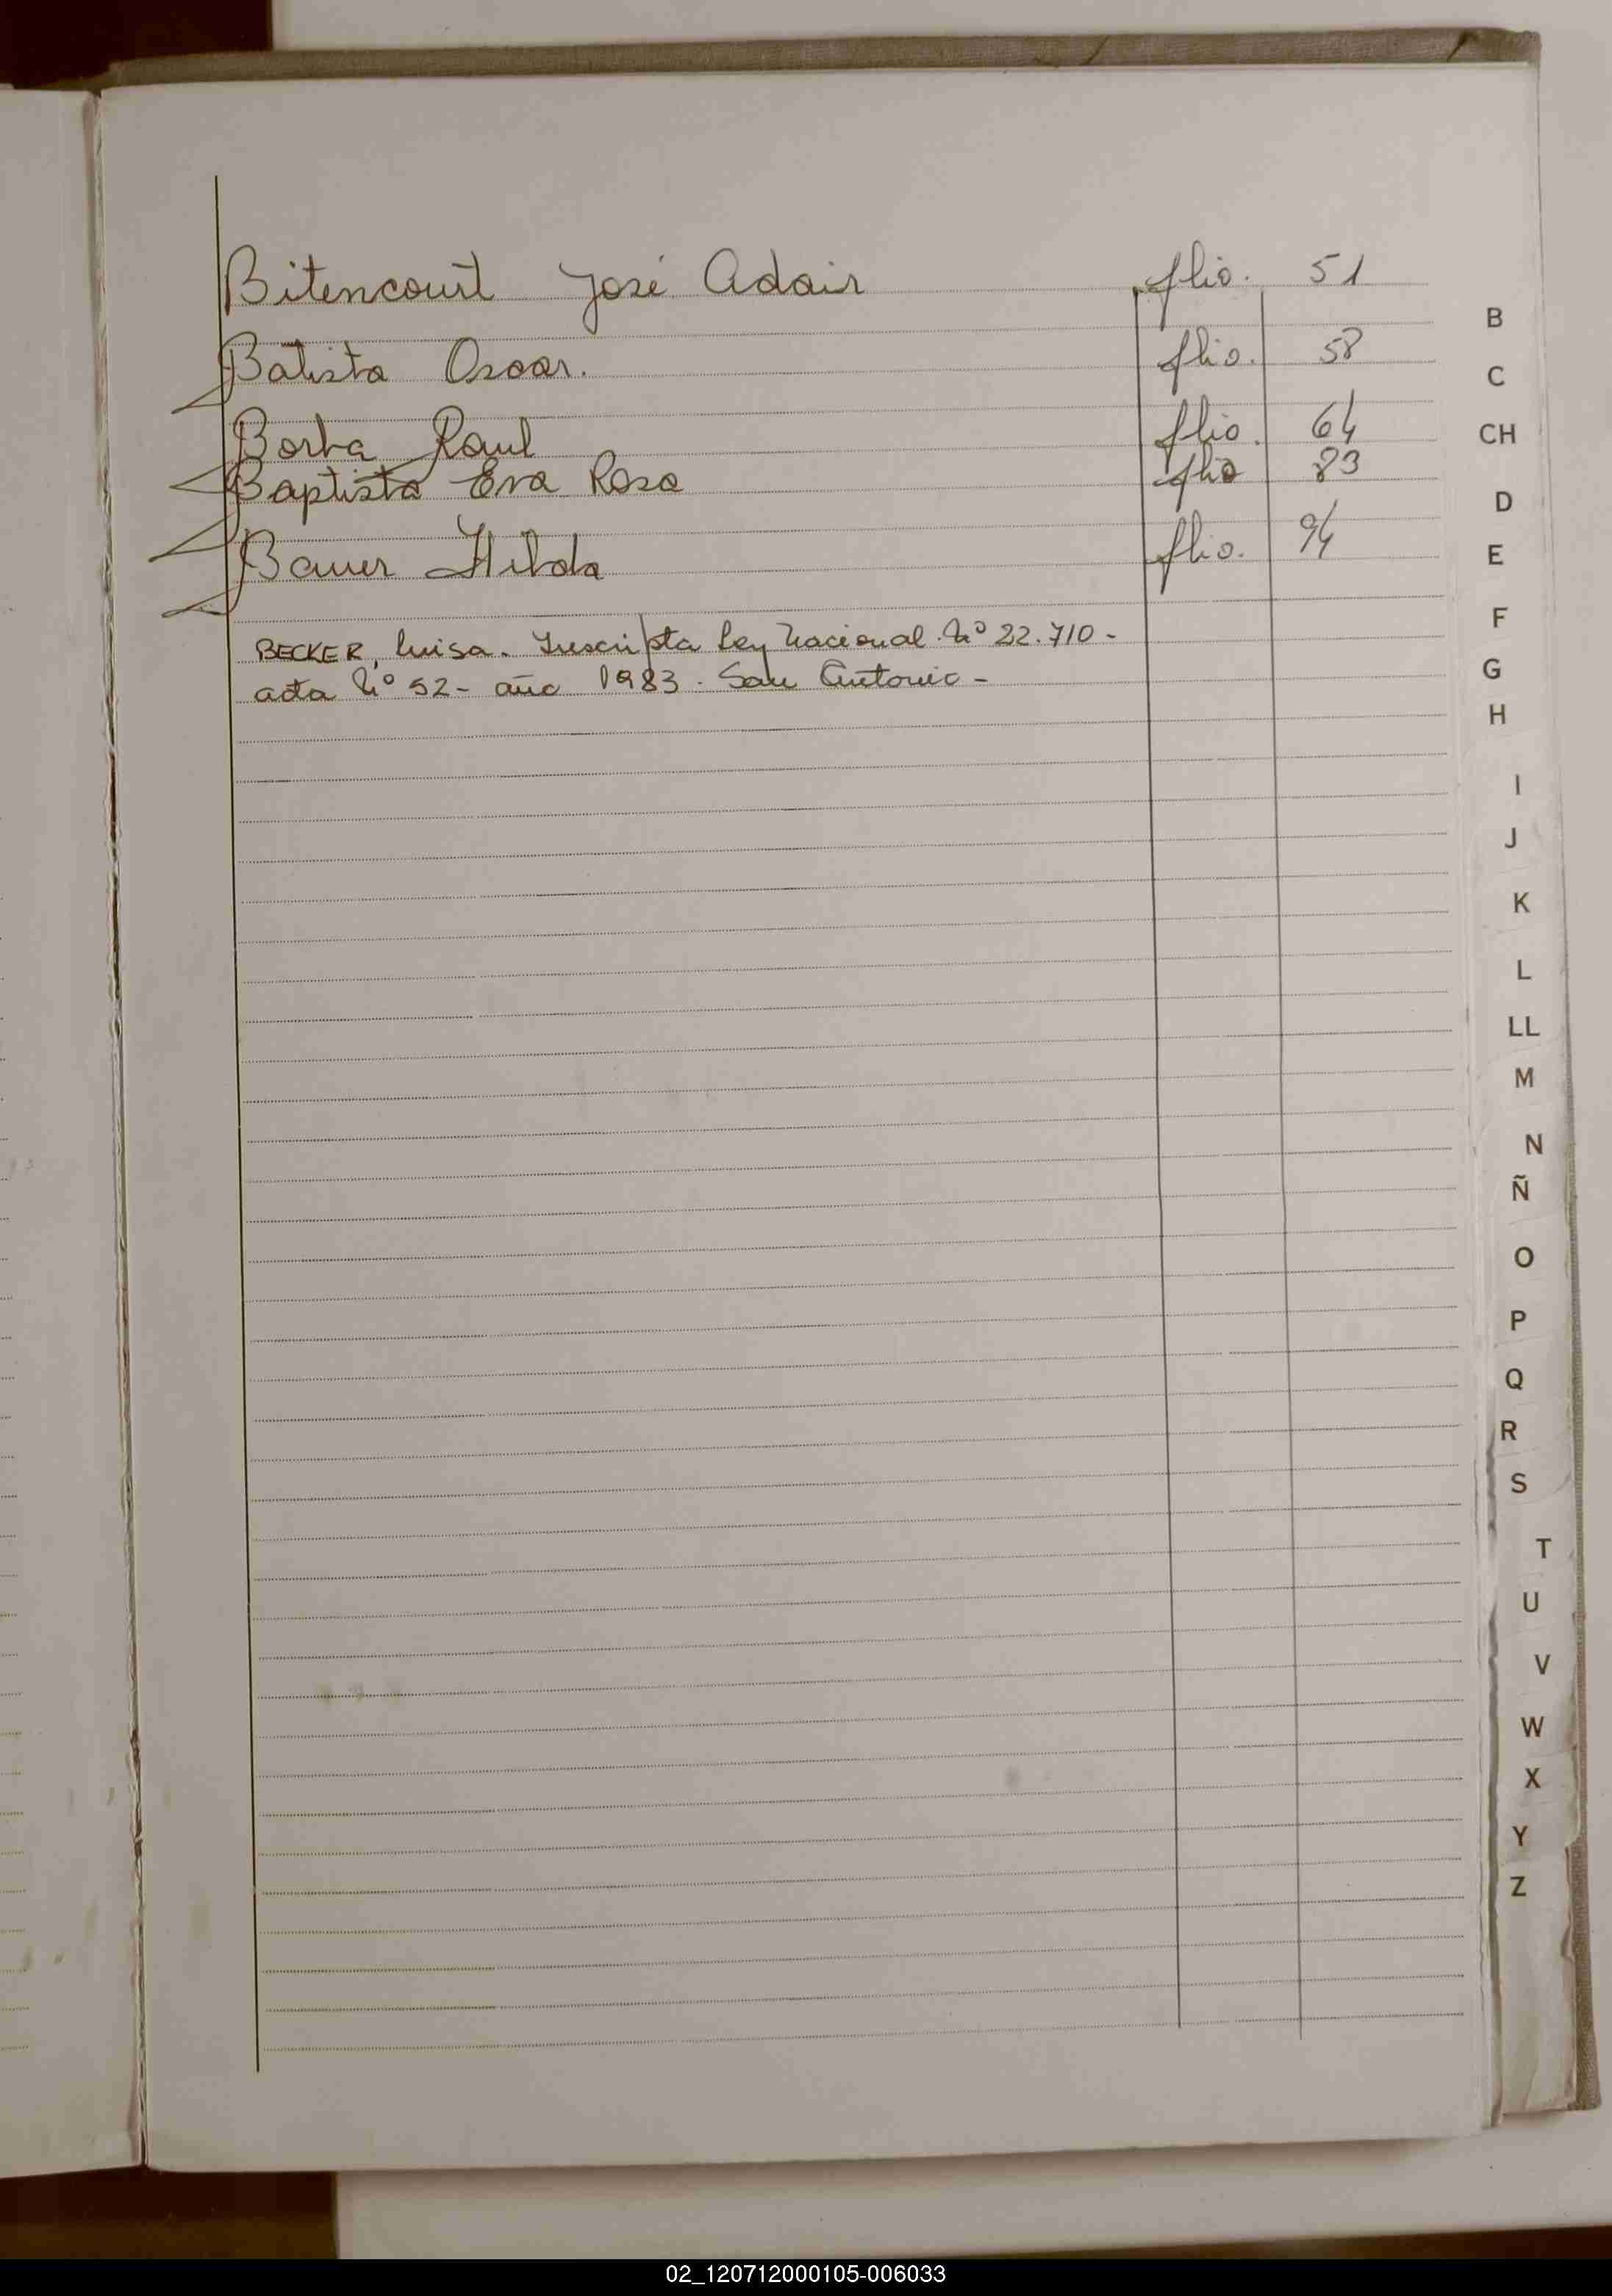 Bitencourt José Adair flio. 51
Batista Oscar. flio. 58
Borba Raul flio. 64
Baptista Eva Rosa flio 83
Bauer Hilda flio. 94
BECKER, Luisa. Inscripta Ley Nacional. Nº 22.710 -
acta Nº 52 - año 1983. San Antonio -
B
C
CH
D
E
F
G
H
I
J
K
L
LL
M
N
Ñ
O
P
Q
R
S
T
U
V
W
X
Y
Z
02_120712000105-006033